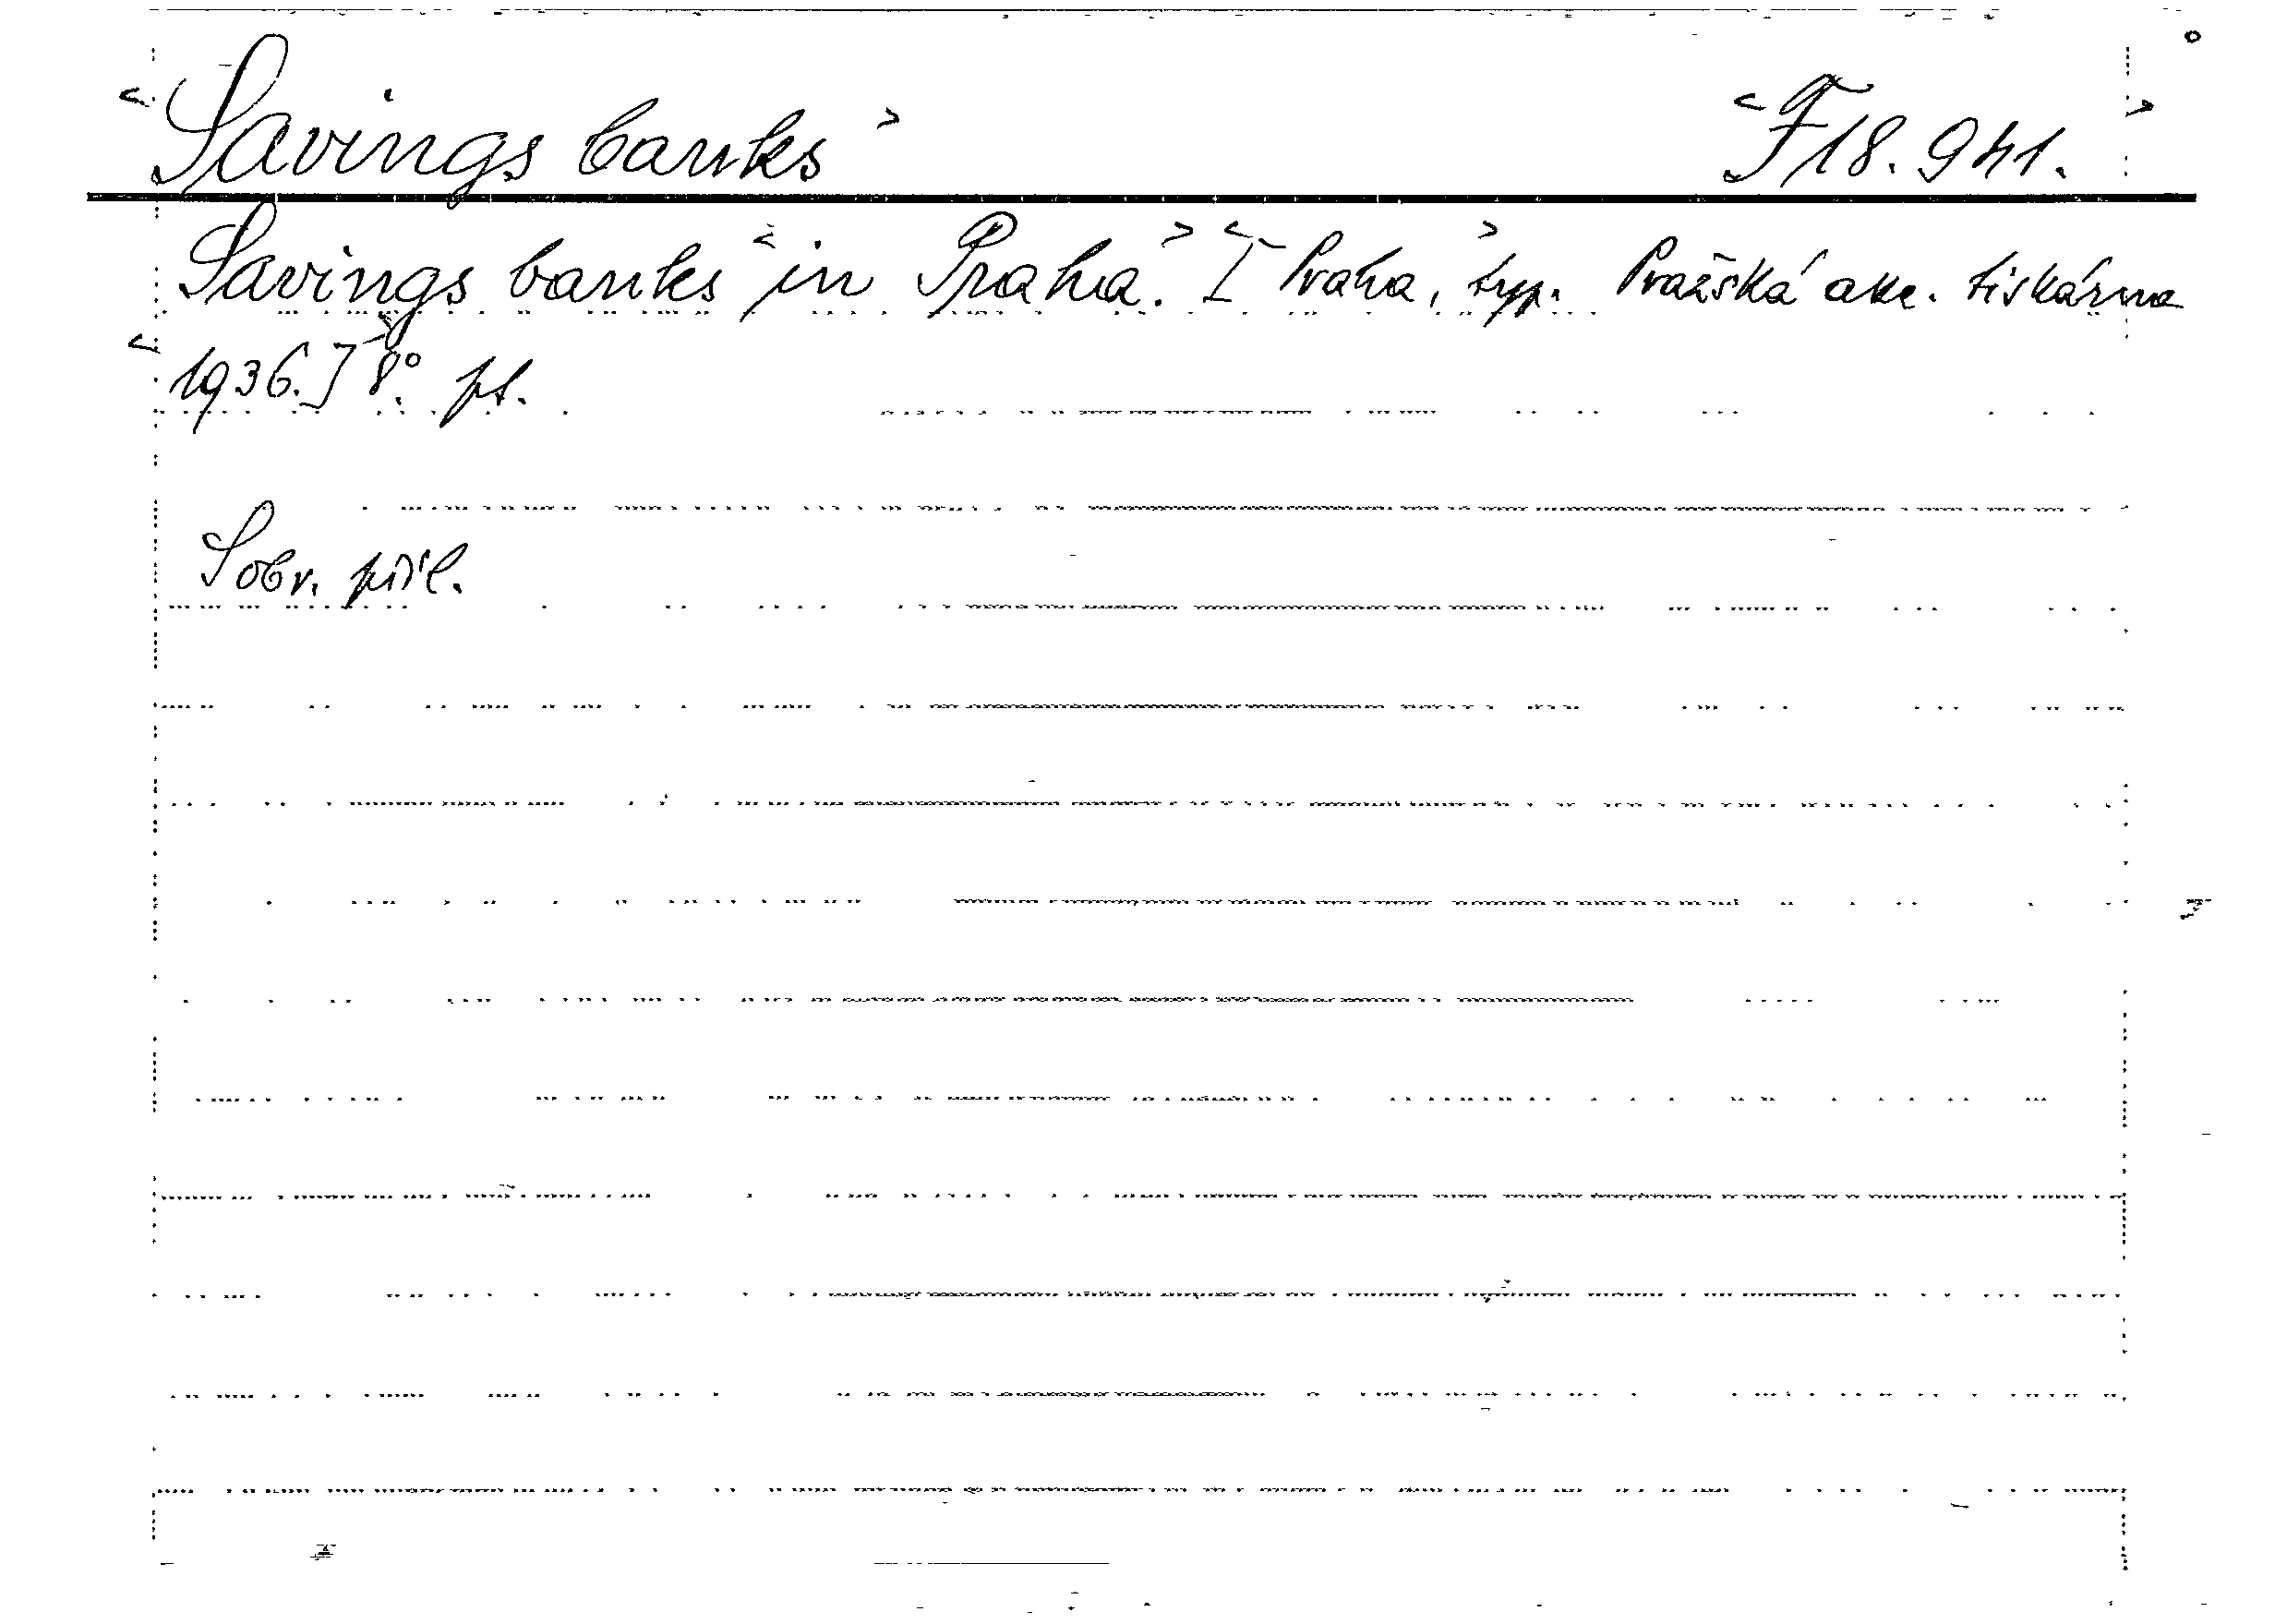 <Savings banks> <F 18.941.>
Savings banks <in Praha.> <[Praha,> typ. Pražská akc. tiskárna
<1936.]> 8°. pt.
S obr. příl.